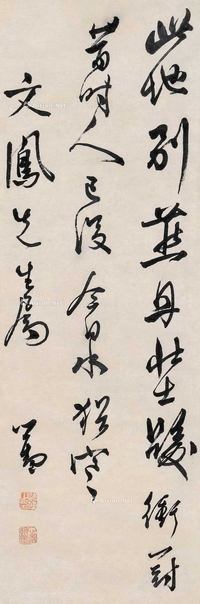 此地別燕丹壯士髮衝冠
昔時人已沒今日水猶寒
文鳳先生屬
心畬